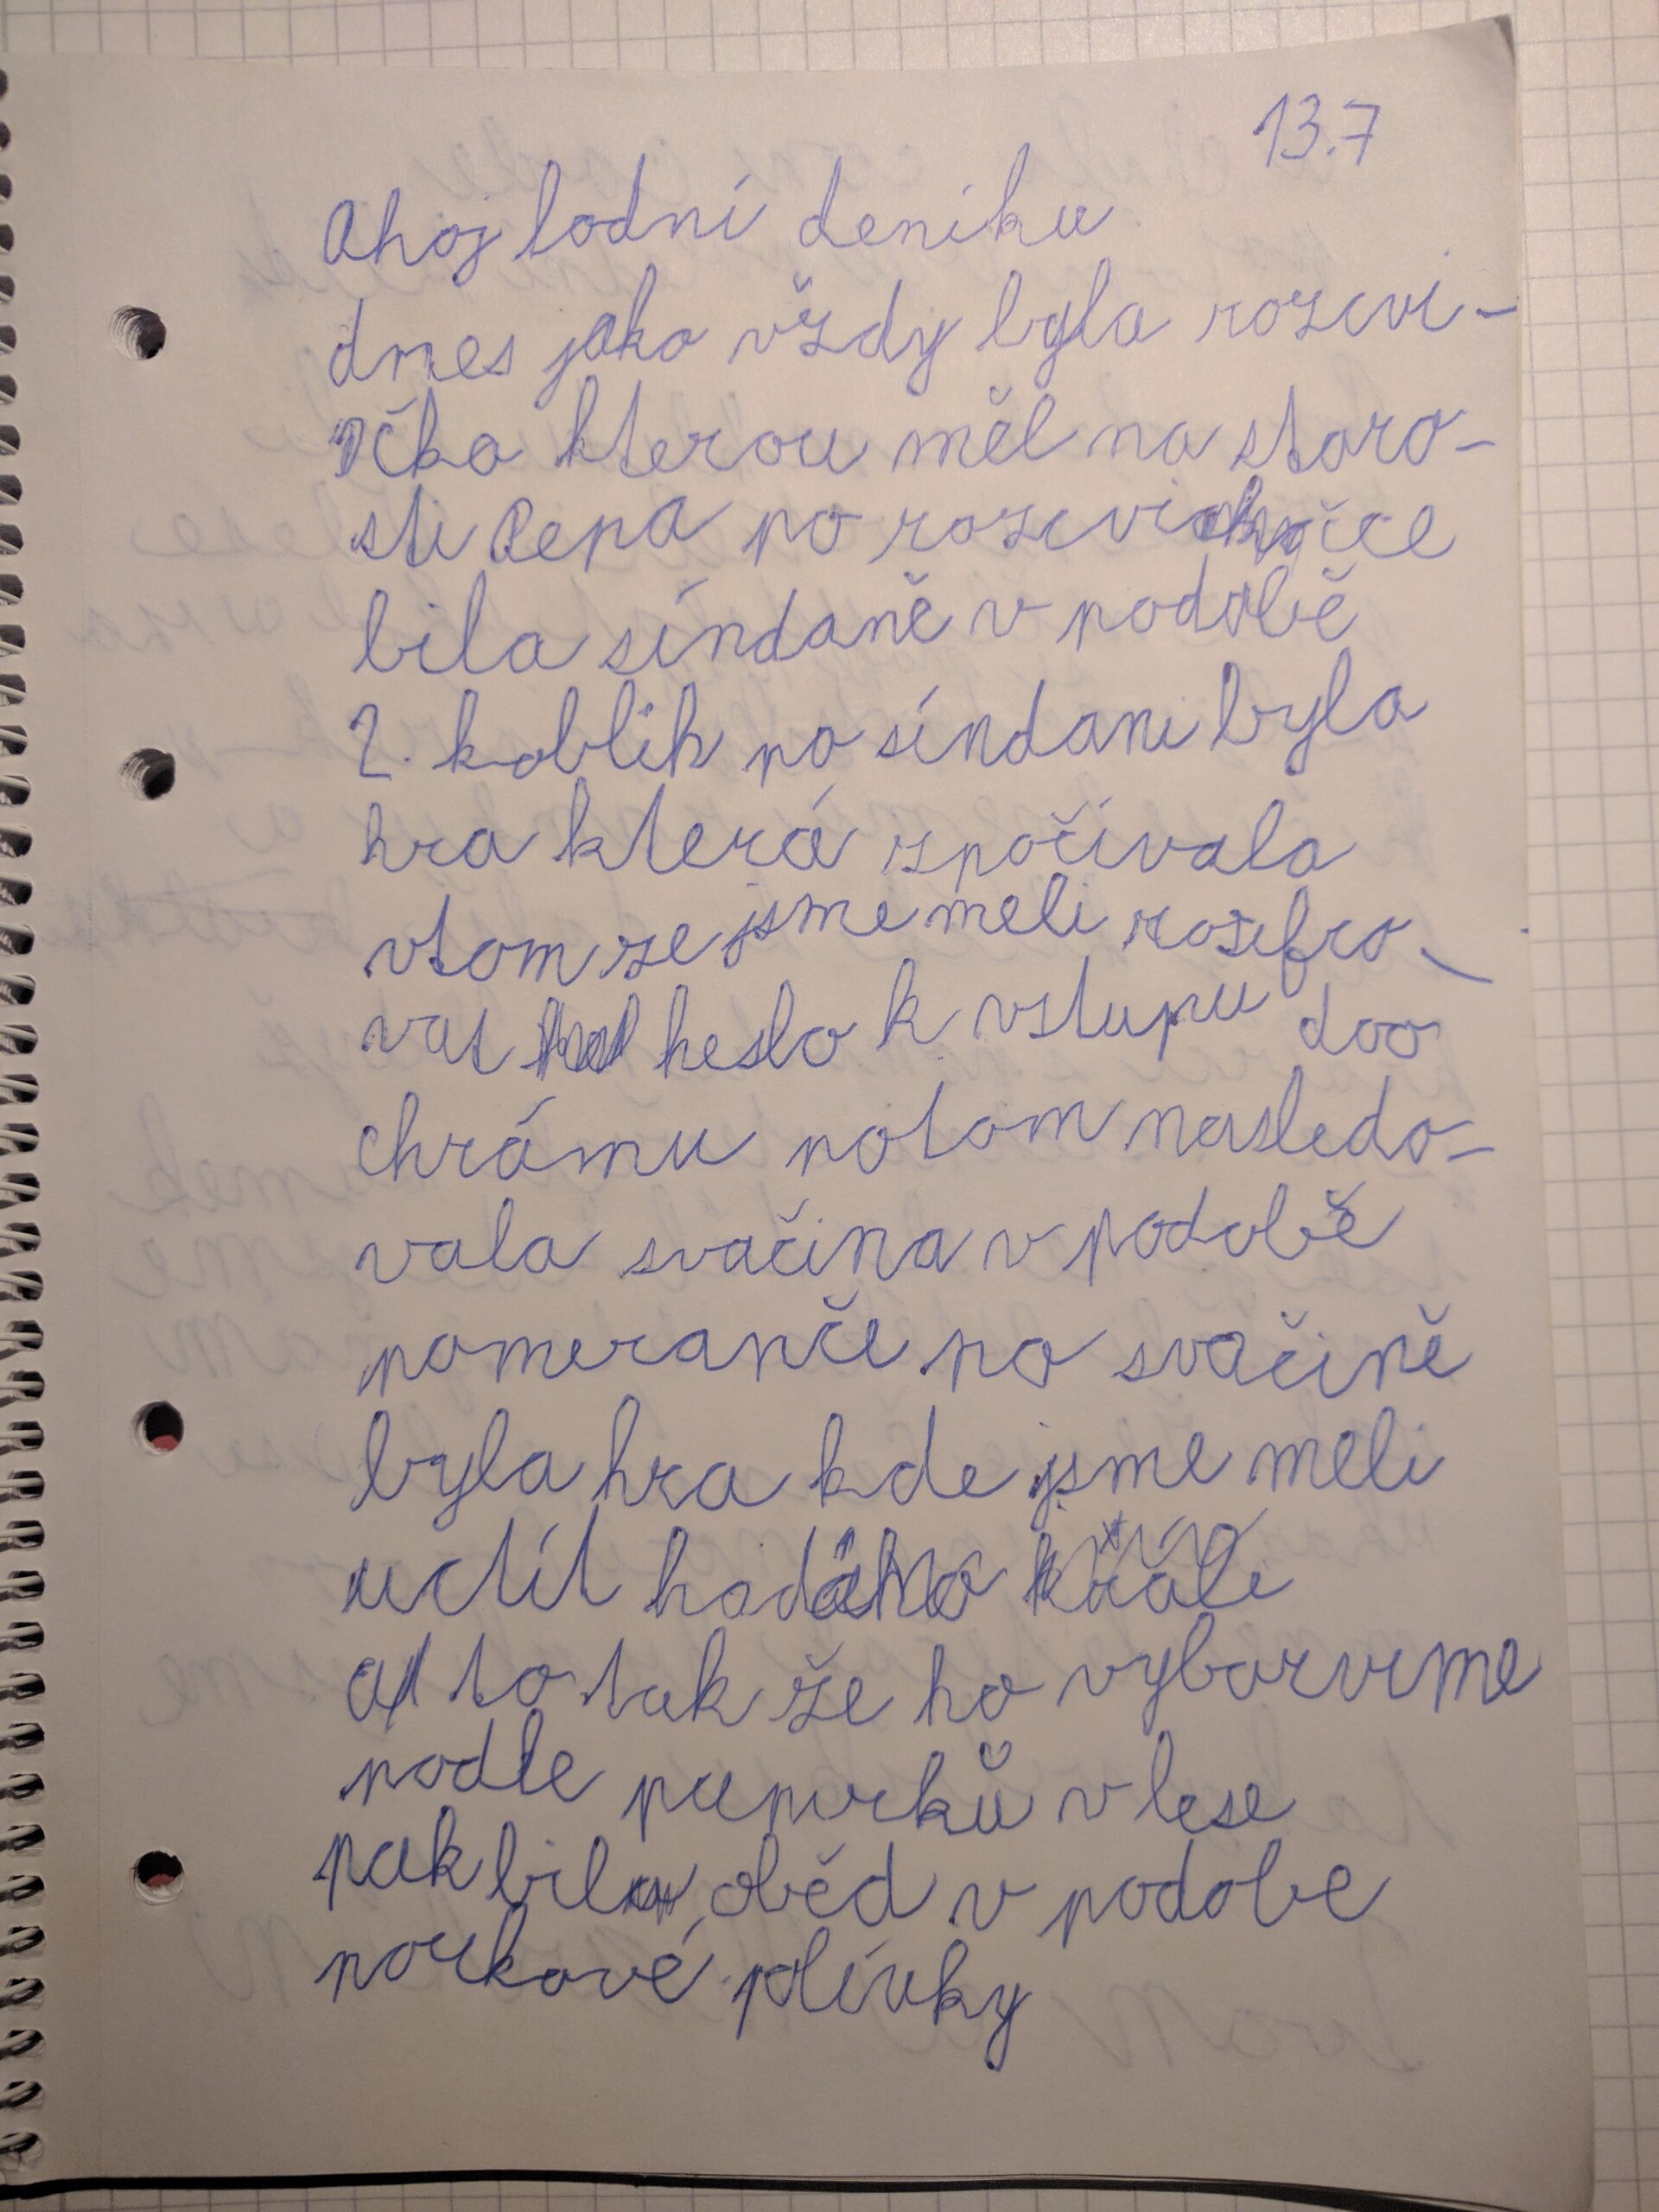 13.7
Ahoj lodní deniku
dnes jako vždy byla rozcvi-
čka kterou měl na staro-
sti Pepa po rozcvičce
bila síndaně v podobě
2. koblih po síndani byla
hra která zpočívala
vtom ze jsme meli rozsifro-
vat heslo k vstupu doo
chrámu potom nasledo-
vala svačina v podobě
pomeranče po svačině
byla hra kde jsme meli
uctít krále
a to tak že ho vybarvime
podle papirků v lese
pak bil oběd v podobe
porkové plívky